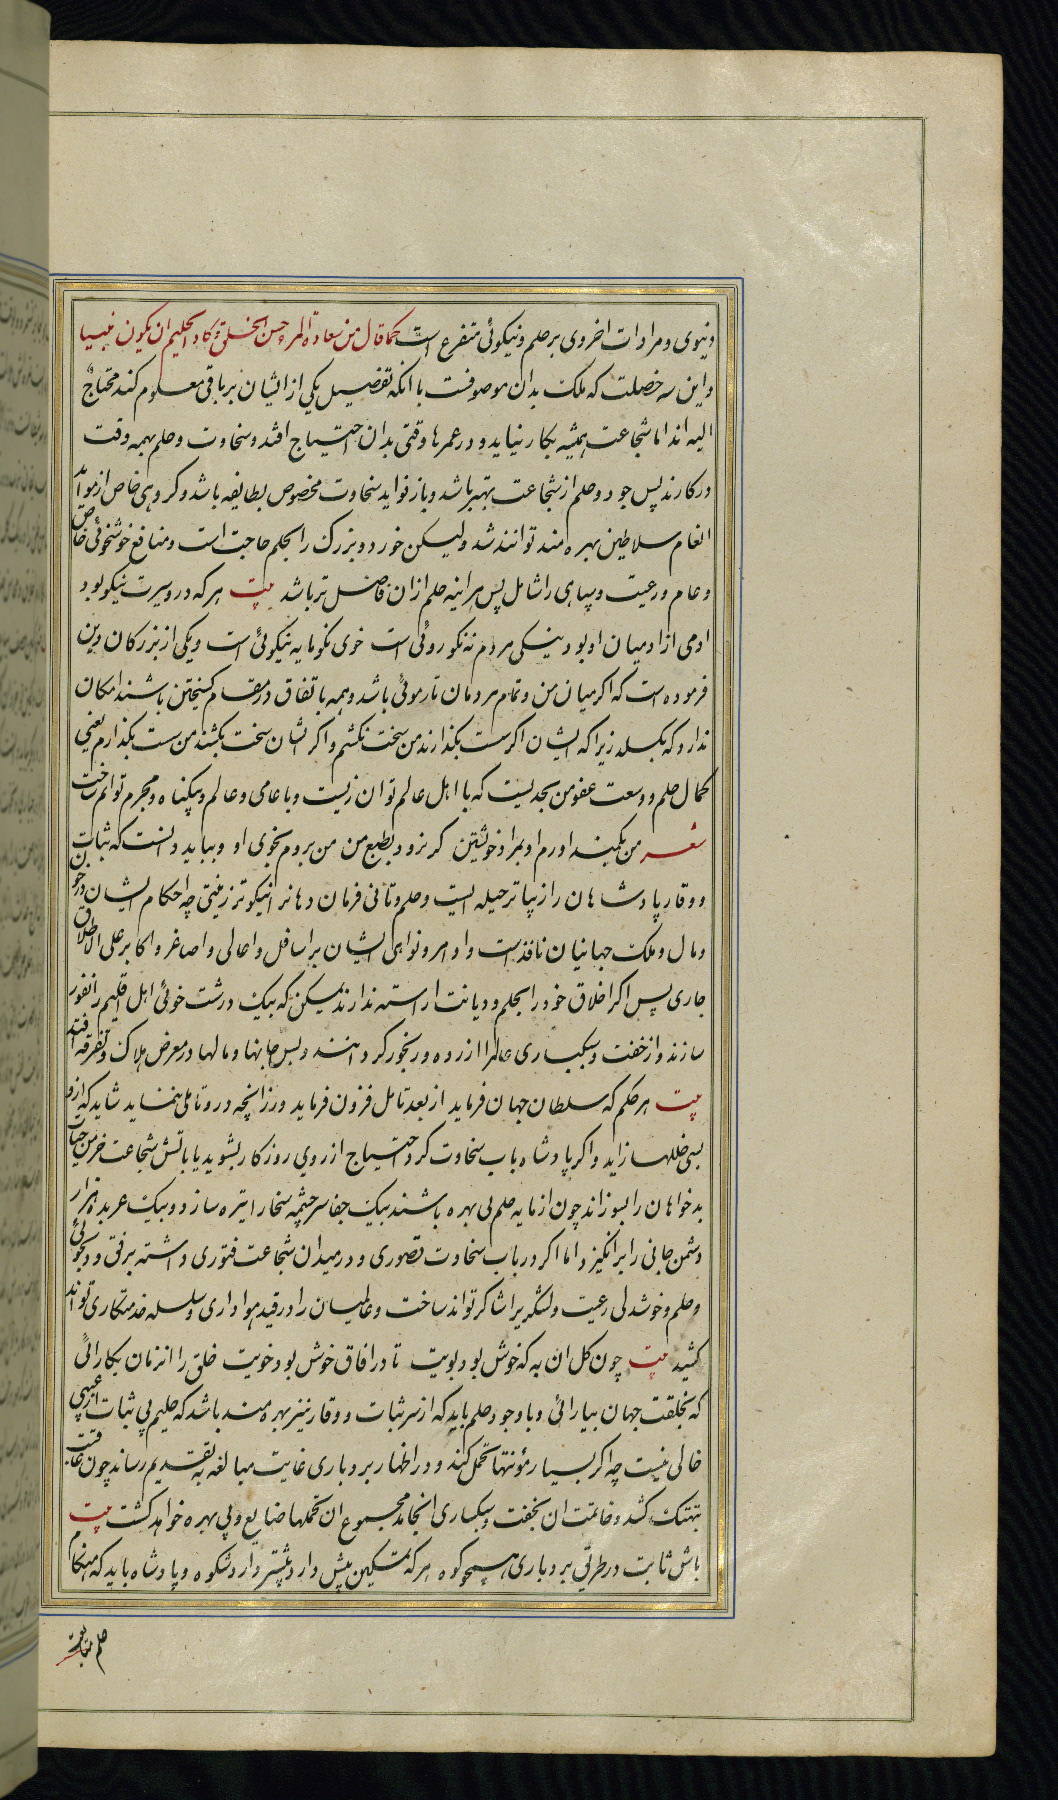 دنیوی و مرادات اخروی بر حلم و نیکوئی متفرع است کما قال من سعادة المرء حسن الخلق و کاد الحلیم ان یکون نبیا
و این سه خصلت که ملک بدان موصوفست با انکه تفضیل یکی از ایشان بر باقی معلوم کند محتاج
الیه اند اما شجاعت همیشه بکار نیاید و در عمرها وقتی بدان احتیاج افتد و سخاوت و حلم بهمه وقت
در کارند پس جود و حلم از شجاعت بهتر باشد و باز فواید سخاوت مخصوص بطایفه باشد و کروهی خاص از موائد
انعام سلاطین بهره مند توانند شد ولیکن خورد و بزرک را بحلم حاجت است و منافع خوشخوئی خاص
و عام و رعیت و سپاهی را شامل پس هراینه حلم از ان فاضل تر باشد بیت هر که در و سیرت نیکو بود
ادمی از ادمیان او بود نیکی مردم نه نکو روئی است خوی نکو مایه نیکوئی است و یکی از بزرکان دین
فرموده است که اکر میان من و تمام مردمان تار موئی باشد و همه باتفاق در مقام کسیختن باشند امکان
ندارد که بکسلد زیرا که ایشان اکر سست بکذارند من سخت بکشم و اکر ایشان سخت بکشند من سست بکذارم یعنی
کمال حلم و وسعت عفو من بحدیست که با اهل عالم توان زیست و با عامی و عالم و بیکناه و مجرم توانم ساخت
شعر من بکمند اورم او بمراد خویشتن کر نرود بطبع من من بروم بخوی او و بباید دانست که ثبات
و وقار پادشاهان را زیباتر حیله ایست و حلم و تانی فرمان دهانرا نیکوتر زینتی چه احکام ایشان در خون
و مال و ملک جهانیان نافذست و اوامر و نواهی ایشان بر اسافل و اعالی و اصاغر و اکابر علی الاطلاق
جاری پس اکر اخلاق خود را بحلم و دیانت اراسته ندارند یمکن که بیک درشت خوئی اهل اقلیم را نفور
سازند و از خفت و سبکباری عالمرا ازرده و رنجور کردانند و بس جانها و مالها در معرض هلاک و تفرقه افتد
بیت هر حکم که سلطان جهان فرماید از بعد تامل فزون فرماید ور زانچه درو تاملی ننماید شاید که ازو
بسی خللها زاید و اکر پادشاه باب سخاوت کرد احتیاج از روی روزکار بشوید یا باتش شجاعت خرمن حیات
بدخواهان را بسوزاند چون از مایه حلم بی بهره باشند بیک جفا سرچشمه سخا را تیره سازد و بیک عربده هزار
دشمن جانی را برانکیزد اما اکر در باب سخاوت قصوری و در میدان شجاعت فتوری داشته برفق و دلجوئی
و حلم و خوشدلی رعیت و لشکر را شاکر تواند ساخت و عالمیان را در قید هواداری و سلسله خدمتکاری تواند
کشید بیت چون کل ان به که خوش بود بویت تا در افاق خوش بود خویت خلق را انزمان بکار ائی
که بخلقت جهان بیارائی و با وجود حلم باید که از سر ثبات و وقار نیز بهره مند باشد که حلیم بی ثبات از عیبی
خالی نیست چه اکر بسیار مؤنتها تحمل کند و در اظهار بردباری غایت مبالغه به تقدیم رساند چون عاقبت
بتهتک کشد و خاتمت ان بخفت و سبکباری انجامد مجموع ان تحملها ضایع و بی بهره خواهد کشت بیت
باش ثابت در طریق بردباری همچو کوه هر که تمکین بیش دارد بیشتر دارد شکوه و پادشاه باید که هنکام
حلم